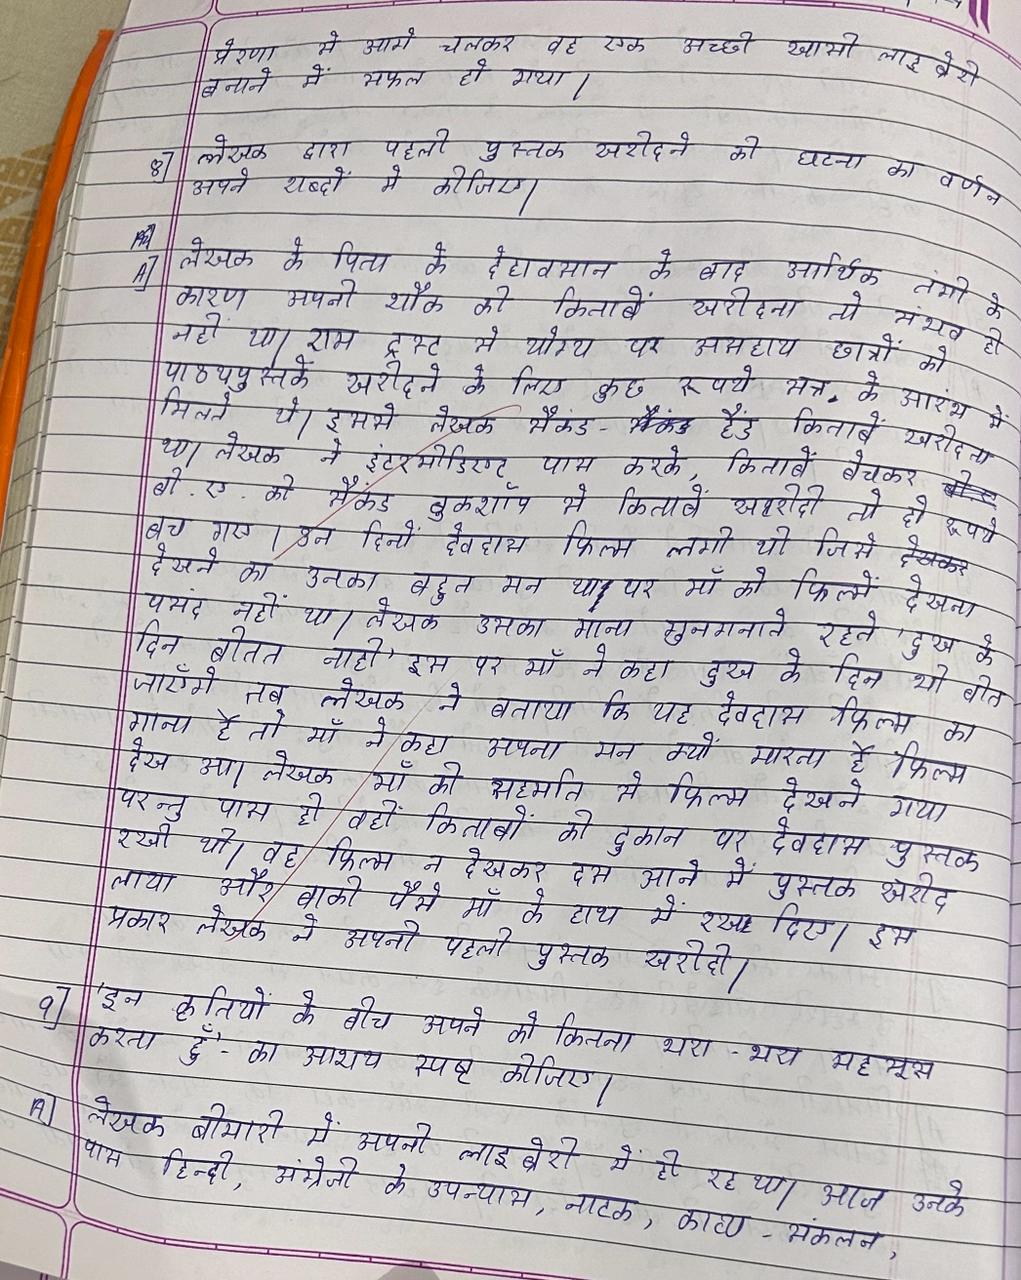 प्रेरणा से आगे चलकर वह एक अच्छी खासी लाइब्रेरी
बनाने में सफल हो गया।
8] लेखक द्वारा पहली पुस्तक खरीदने की घटना का वर्णन
अपने शब्दों में कीजिए।
A] लेखक के पिता के देहावसान के बाद आर्थिक तंगी के
कारण अपनी शौक की किताबें खरीदना तो संभव ही
नहीं था। राम ट्रस्ट से योग्य पर असहाय छात्रों को
पाठ्यपुस्तकें खरीदने के लिए कुछ रूपये सत्र के आरंभ में
मिलते थे। इससे लेखक सैकंड - हैंड किताबें खरीदता
था। लेखक ने इंटरमीडिएट पास करके, किताबें बेचकर
बी.ए. की सैकंड बुकशॉप से किताबें खरीदी तो दो रूपये
बच गए। उन दिनों देवदास फिल्म लगी थी जिसे
देखने का उनका बहुत मन था पर माँ को फिल्में देखना
पसंद नहीं था। लेखक उसका गाना गुनगुनाते रहते 'दुख के
दिन बीतत नाही' इस पर माँ ने कहा दुख के दिन भी बीत
जाएँगे तब लेखक ने बताया कि यह देवदास फिल्म का
गाना है तो माँ ने कहा अपना मन क्यों मारता है फिल्म
देख आ। लेखक माँ की सहमति से फिल्म देखने गया
परन्तु पास ही वहीं किताबों की दुकान पर देवदास पुस्तक
रखी थी। वह फिल्म न देखकर दस आने में पुस्तक खरीद
लाया और बाकी पैसे माँ के हाथ में रख दिए। इस
प्रकार लेखक ने अपनी पहली पुस्तक खरीदी।
9] 'इन कृतियों के बीच अपने को कितना भरा - भरा महसूस
करता हूँ' - का आशय स्पष्ट कीजिए।
A] लेखक बीमारी में अपनी लाइब्रेरी में ही रह था। आज उनके
पास हिन्दी, अंग्रेजी के उपन्यास, नाटक, काव्य - संकलन,